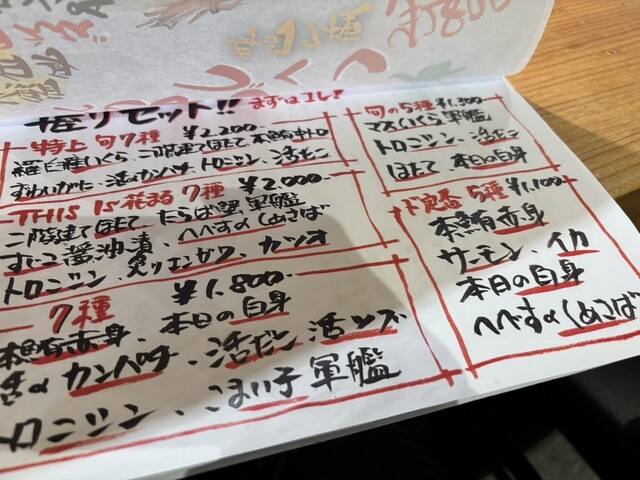 握りセット!! まずはコレ!
特上 旬7種 ¥2,200
羅臼産いくら、二階建てほたて、本鮪中トロ
ずわいがに、活〆カンパチ、トロニシン、活ホヤ
THIS IS 花まる 7種 ¥2,000
二階建てほたて、たらば蟹軍艦
すじこ醤油漬、へべす〆しめさば
トロニシン、炙りエンガワ、カツオ
7種 ¥1,800
本鮪赤身、本日の白身
活〆カンパチ、活ホヤ、活ツブ
トロニシン、こまい子軍艦
旬の5種 ¥1,300
マスいくら軍艦
トロニシン、活ホヤ
ほたて、本日の白身
ド定番 5種 ¥1,100
本鮪赤身
サーモン、イカ
本日の白身
へべす〆しめさば